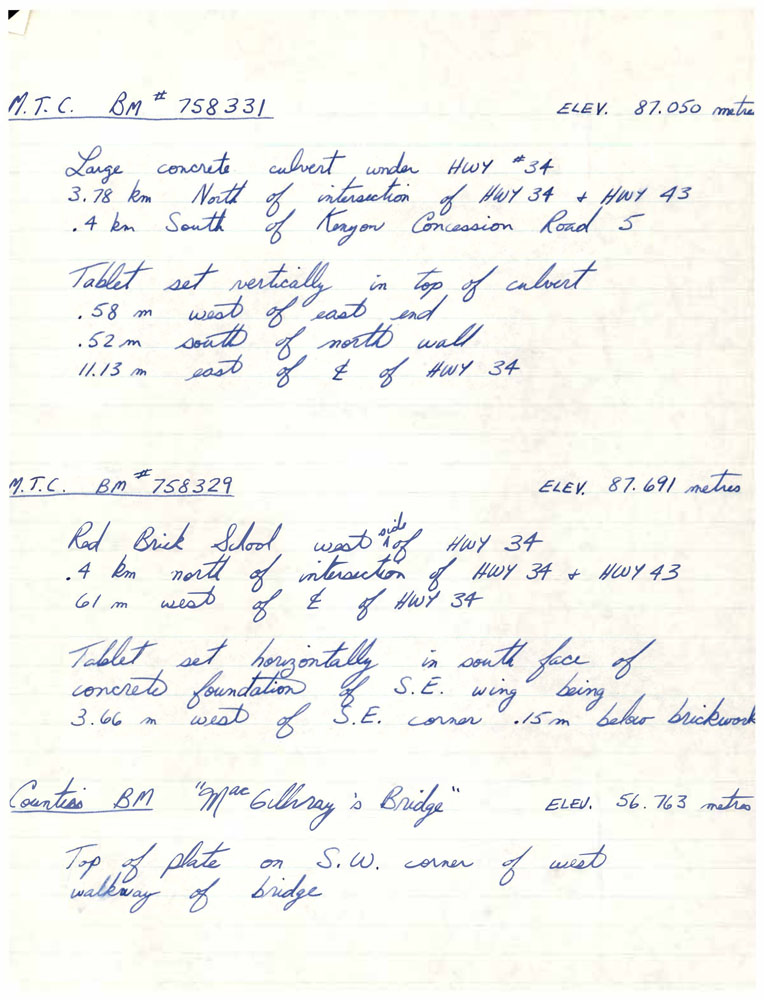 M.T.C. BM # 758331 ELEV. 87.050 metre
Large concrete culvert under HWY #34
3.78 km North of intersection of HWY 34 + HWY 43
.4 km South of Kenyon Concession Road 5
Tablet set vertically in top of culvert
.58 m west of east end
.52 m south of north wall
11.13 m east of ℄ of HWY 34
M.T.C. BM # 758329 ELEV. 87.691 metres
Red Brick School west side of HWY 34
.4 km north of intersection of HWY 34 + HWY 43
61 m west of ℄ of HWY 34
Tablet set horizontally in south face of
concrete foundation of S.E. wing being
3.66 m west of S.E. corner .15m below brickwork
Counties BM "MacGillvray's Bridge" ELEV. 56.763 metres
Top of plate on S.W. corner of west
walkway of bridge